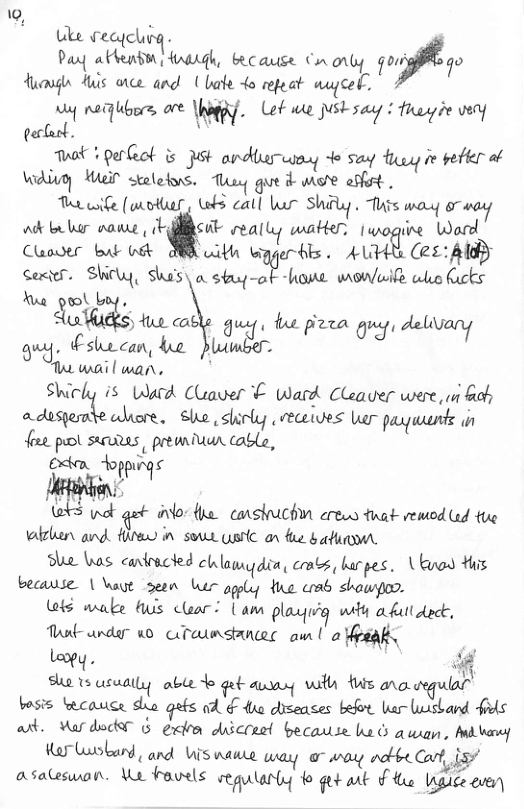 10.
Like recycling.
Pay attention, though, because i'm only going to go
through this once and I hate to repeat myself.
My neighbors are happy. Let me just say: they're very
perfect.
That: perfect is just another way to say they're better at
hiding their skeletons. They give it more effort.
The wife/mother, let's call her Shirly. This may or may
not be her name, it doesn't really matter. Imagine Ward
Cleaver but hot and with bigger tits. A little (RE: a lot)
sexier. Shirly, she's a stay-at-home mom/wife who fucks
the pool boy.
She fucks the cable guy, the pizza guy, delivary
guy. if she can, the plumber.
The mail man.
Shirly is Ward Cleaver if Ward Cleaver were, in fact,
a desperate whore. She, Shirly, receives her payments in
free pool services, premium cable,
Extra toppings
Attention.
Let's not get into the construction crew that remodled the
kitchen and threw in some work on the bathroom.
She has contracted chlamydia, crabs, herpes. I know this
because I have seen her apply the crab shampoo.
Let's make this clear: I am playing with a full deck.
That under no circumstances am I a freak.
Loopy.
She is usually able to get away with this on a regular
basis because she gets rid of the diseases before her husband finds
out. Her doctor is extra discreet because he is a man. And horny
Her husband, and his name may or may not be Carl, is
a salesman. He travels regularly to get out of the house even